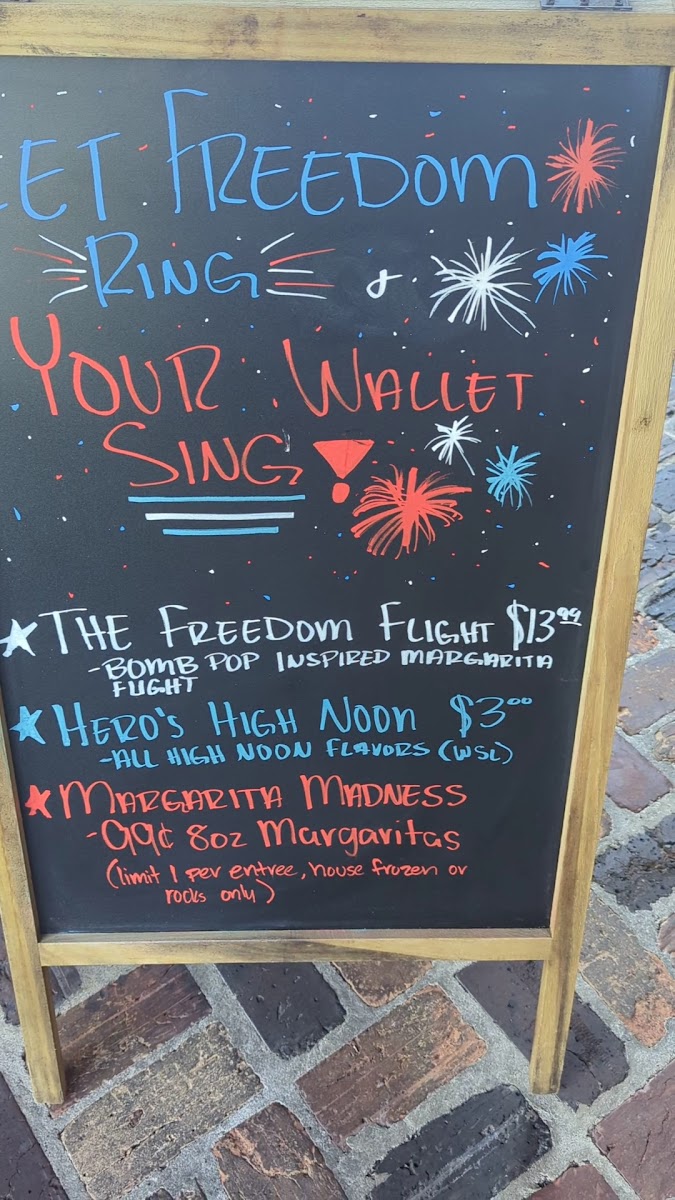 ET FREEDOM
RING &
YOUR WALLET
SING!
THE FREEDOM FLIGHT $13.99
-BOMB POP INSPIRED MARGARITA
FLIGHT
HERO'S HIGH NOON $3.00
-ALL HIGH NOON FLAVORS (WSL)
MARGARITA MADNESS
-99¢ 8oz Margaritas
(limit 1 per entree, house frozen or
rocks only)